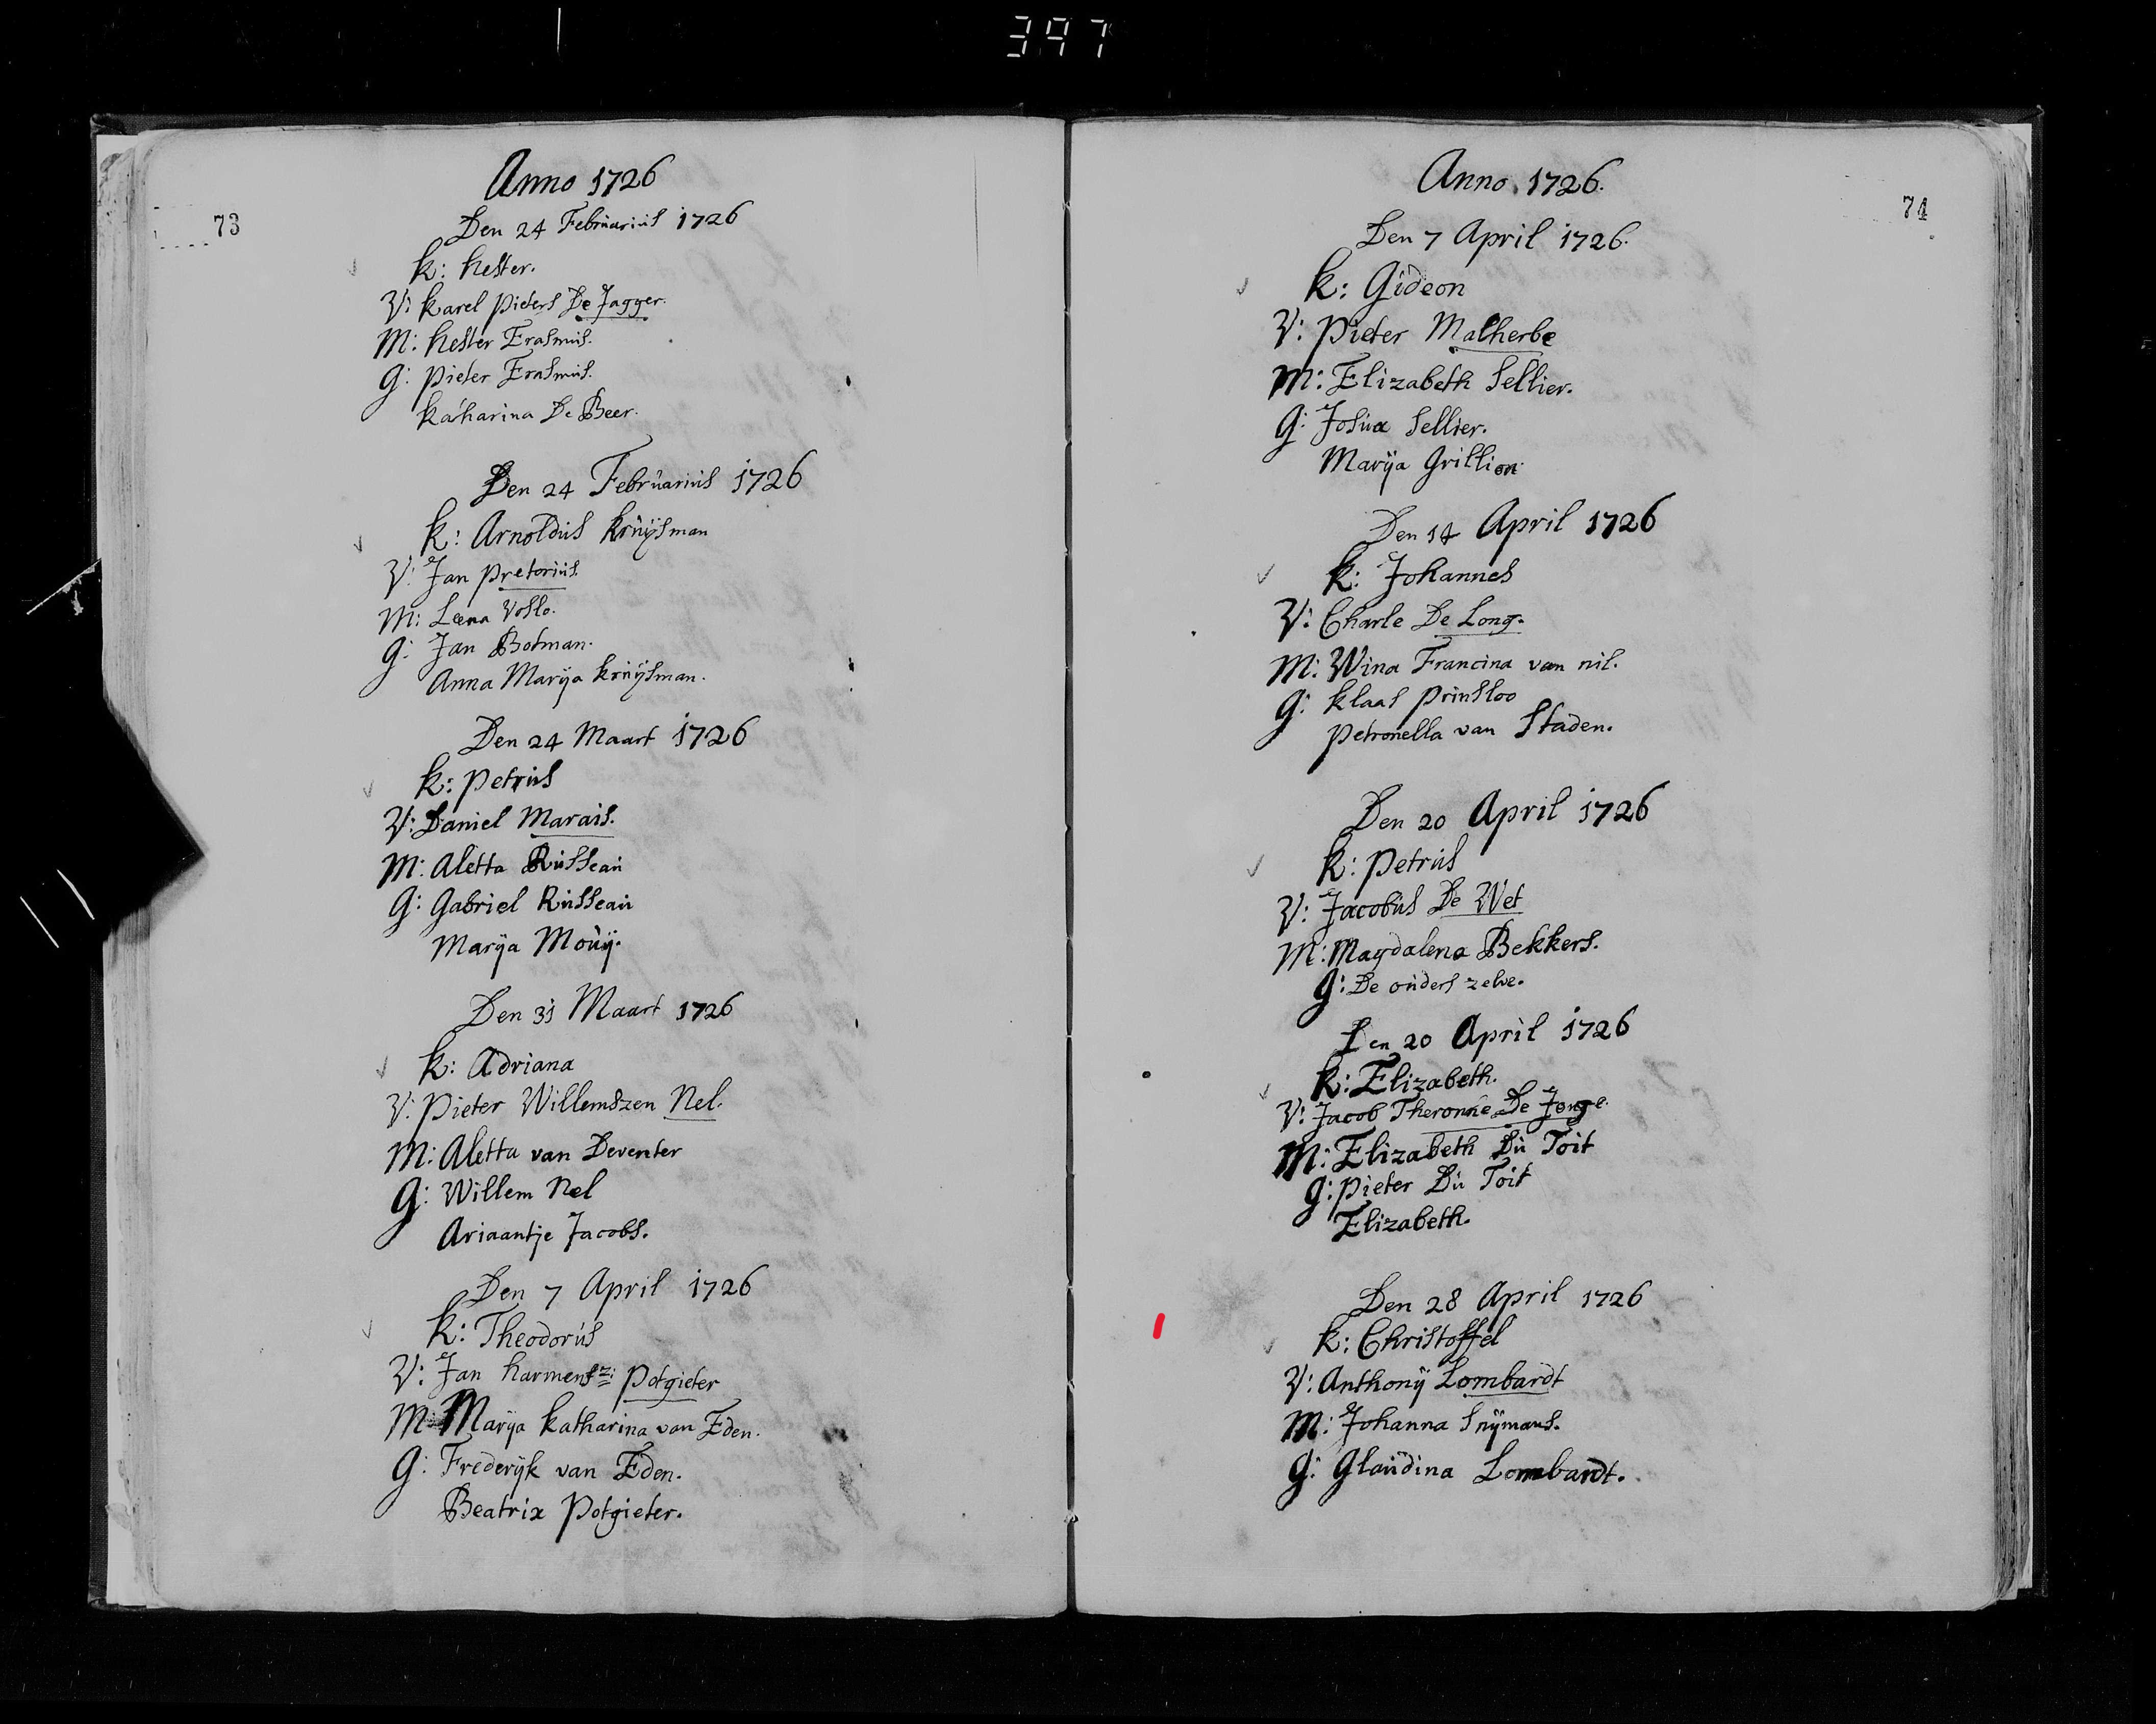 397
Anno 1726
73
Den 24 Februarius 1726
K: Hester.
V: Karel Pieters De Jagger.
M: Hester Erasmus.
G: Pieter Erasmus.
Katharina De Beer.
Den 24 Februarius 1726
K: Arnoldus Kruijsman
V: Jan Pretorius.
M: Leena Voslo.
G: Jan Botman.
Anna Marija Kruijsman.
Den 24 Maart 1726
K: Petrus
V: Daniel Marais.
M: Aletta Russeau
G: Gabriel Russeau
Marija Mouij.
Den 31 Maart 1726
K: Adriana
V: Pieter Willemszen Nel.
M: Aletta van Deventer
G: Willem Nel
Ariaantje Jacobs.
Den 7 April 1726
K: Theodorus
V: Jan Harmensz: Potgieter
M: Marija Katharina van Eden.
G: Frederijk van Eden.
Beatrix Potgieter.
Anno 1726.
74
Den 7 April 1726.
K: Gideon
V: Pieter Malherbe
M: Elizabeth Sellier.
G: Josua Sellier.
Marija Grillion
Den 14 April 1726
K: Johannes
V: Charle De Long.
M: Wina Francina van nil.
G: Klaas Prinsloo
Petronella van Staden.
Den 20 April 1726
K: Petrus
V: Jacobus De Wet
M: Magdalena Bekkers.
G: De ouders zelve.
Den 20 April 1726
K: Elizabeth.
V: Jacob Theronne De Jonge.
M: Elizabeth Du Toit
G: Pieter Du Toit
Elizabeth.
Den 28 April 1726
K: Christoffel
V: Anthonij Lombardt
M: Johanna Snijmans.
G: Glaudina Lombardt.